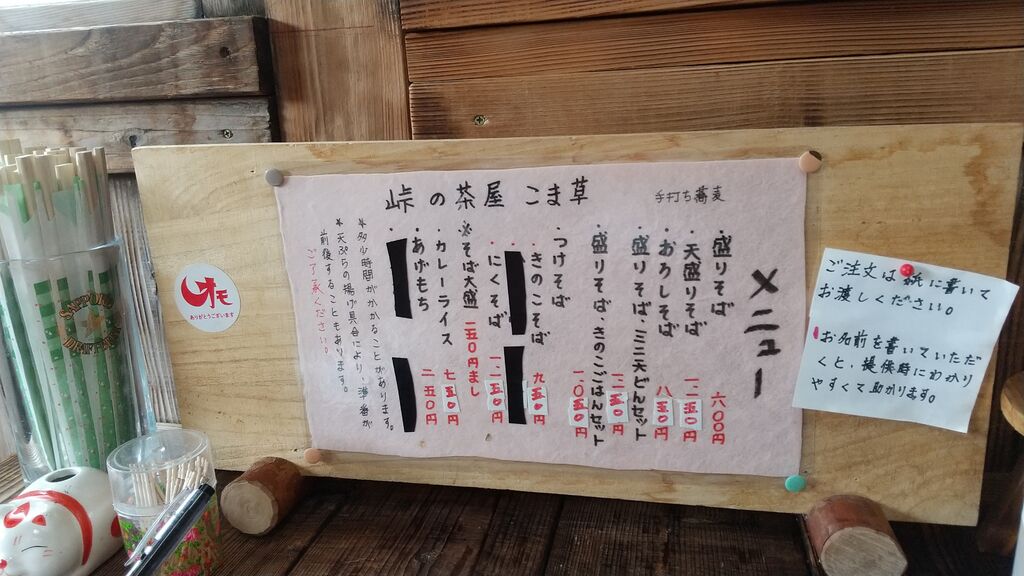 峠の茶屋 こま草
手打ち蕎麦
メニュー
・盛りそば 六〇〇円
・天盛りそば 一、一五〇円
・おろしそば 八五〇円
・盛りそば・ミニ天どんセット 一、二五〇円
・盛りそば・きのこごはんセット 一、〇五〇円
・つけそば
・きのこそば 九五〇円
・にくそば 一、一五〇円
※そば大盛 二五〇円まし
・カレーライス 七五〇円
・あげもち 二五〇円
*多少時間がかかることがあります。
*天ぷらの揚げ具合により、順番が
前後することもあります。
ご了承ください。
ご注文は紙に書いて
お渡しください。
お名前を書いていただ
くと、提供時にわかり
やすくて助かります。
ありがとうございます
SAPPORO
DRAFT